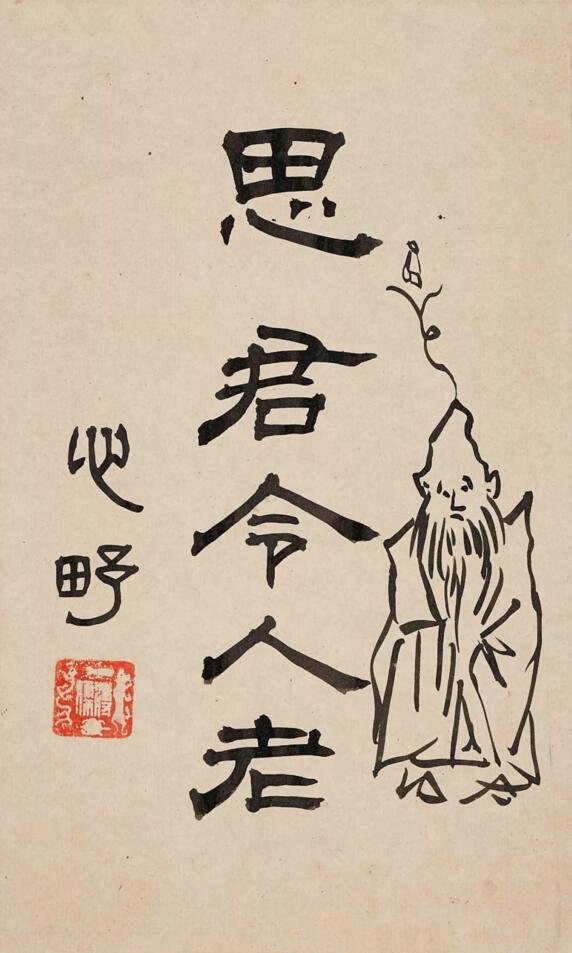 思君令人老
心野